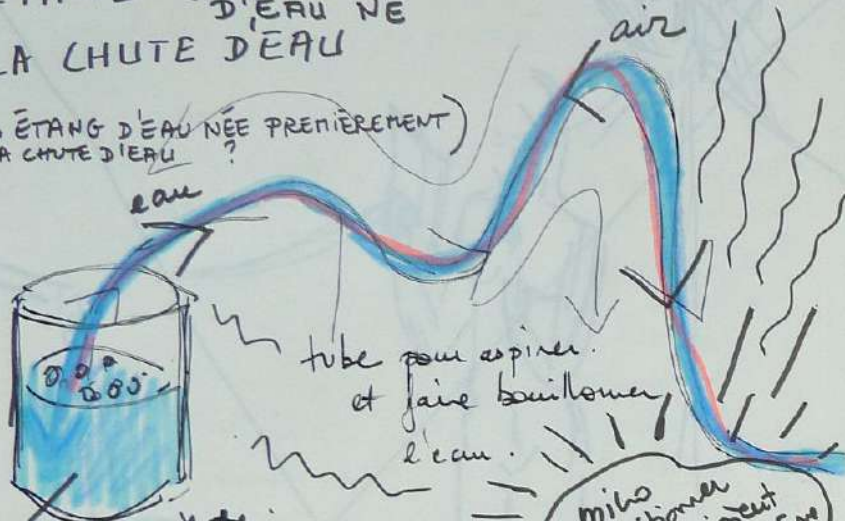 D'EAU NE
LA CHUTE D'EAU
ÉTANG D'EAU NÉE PREMIÈREMENT)
A CHUTE D'IEAU ?
air
eau
tube pour aspirer.
et faire bouillonner
l'eau.